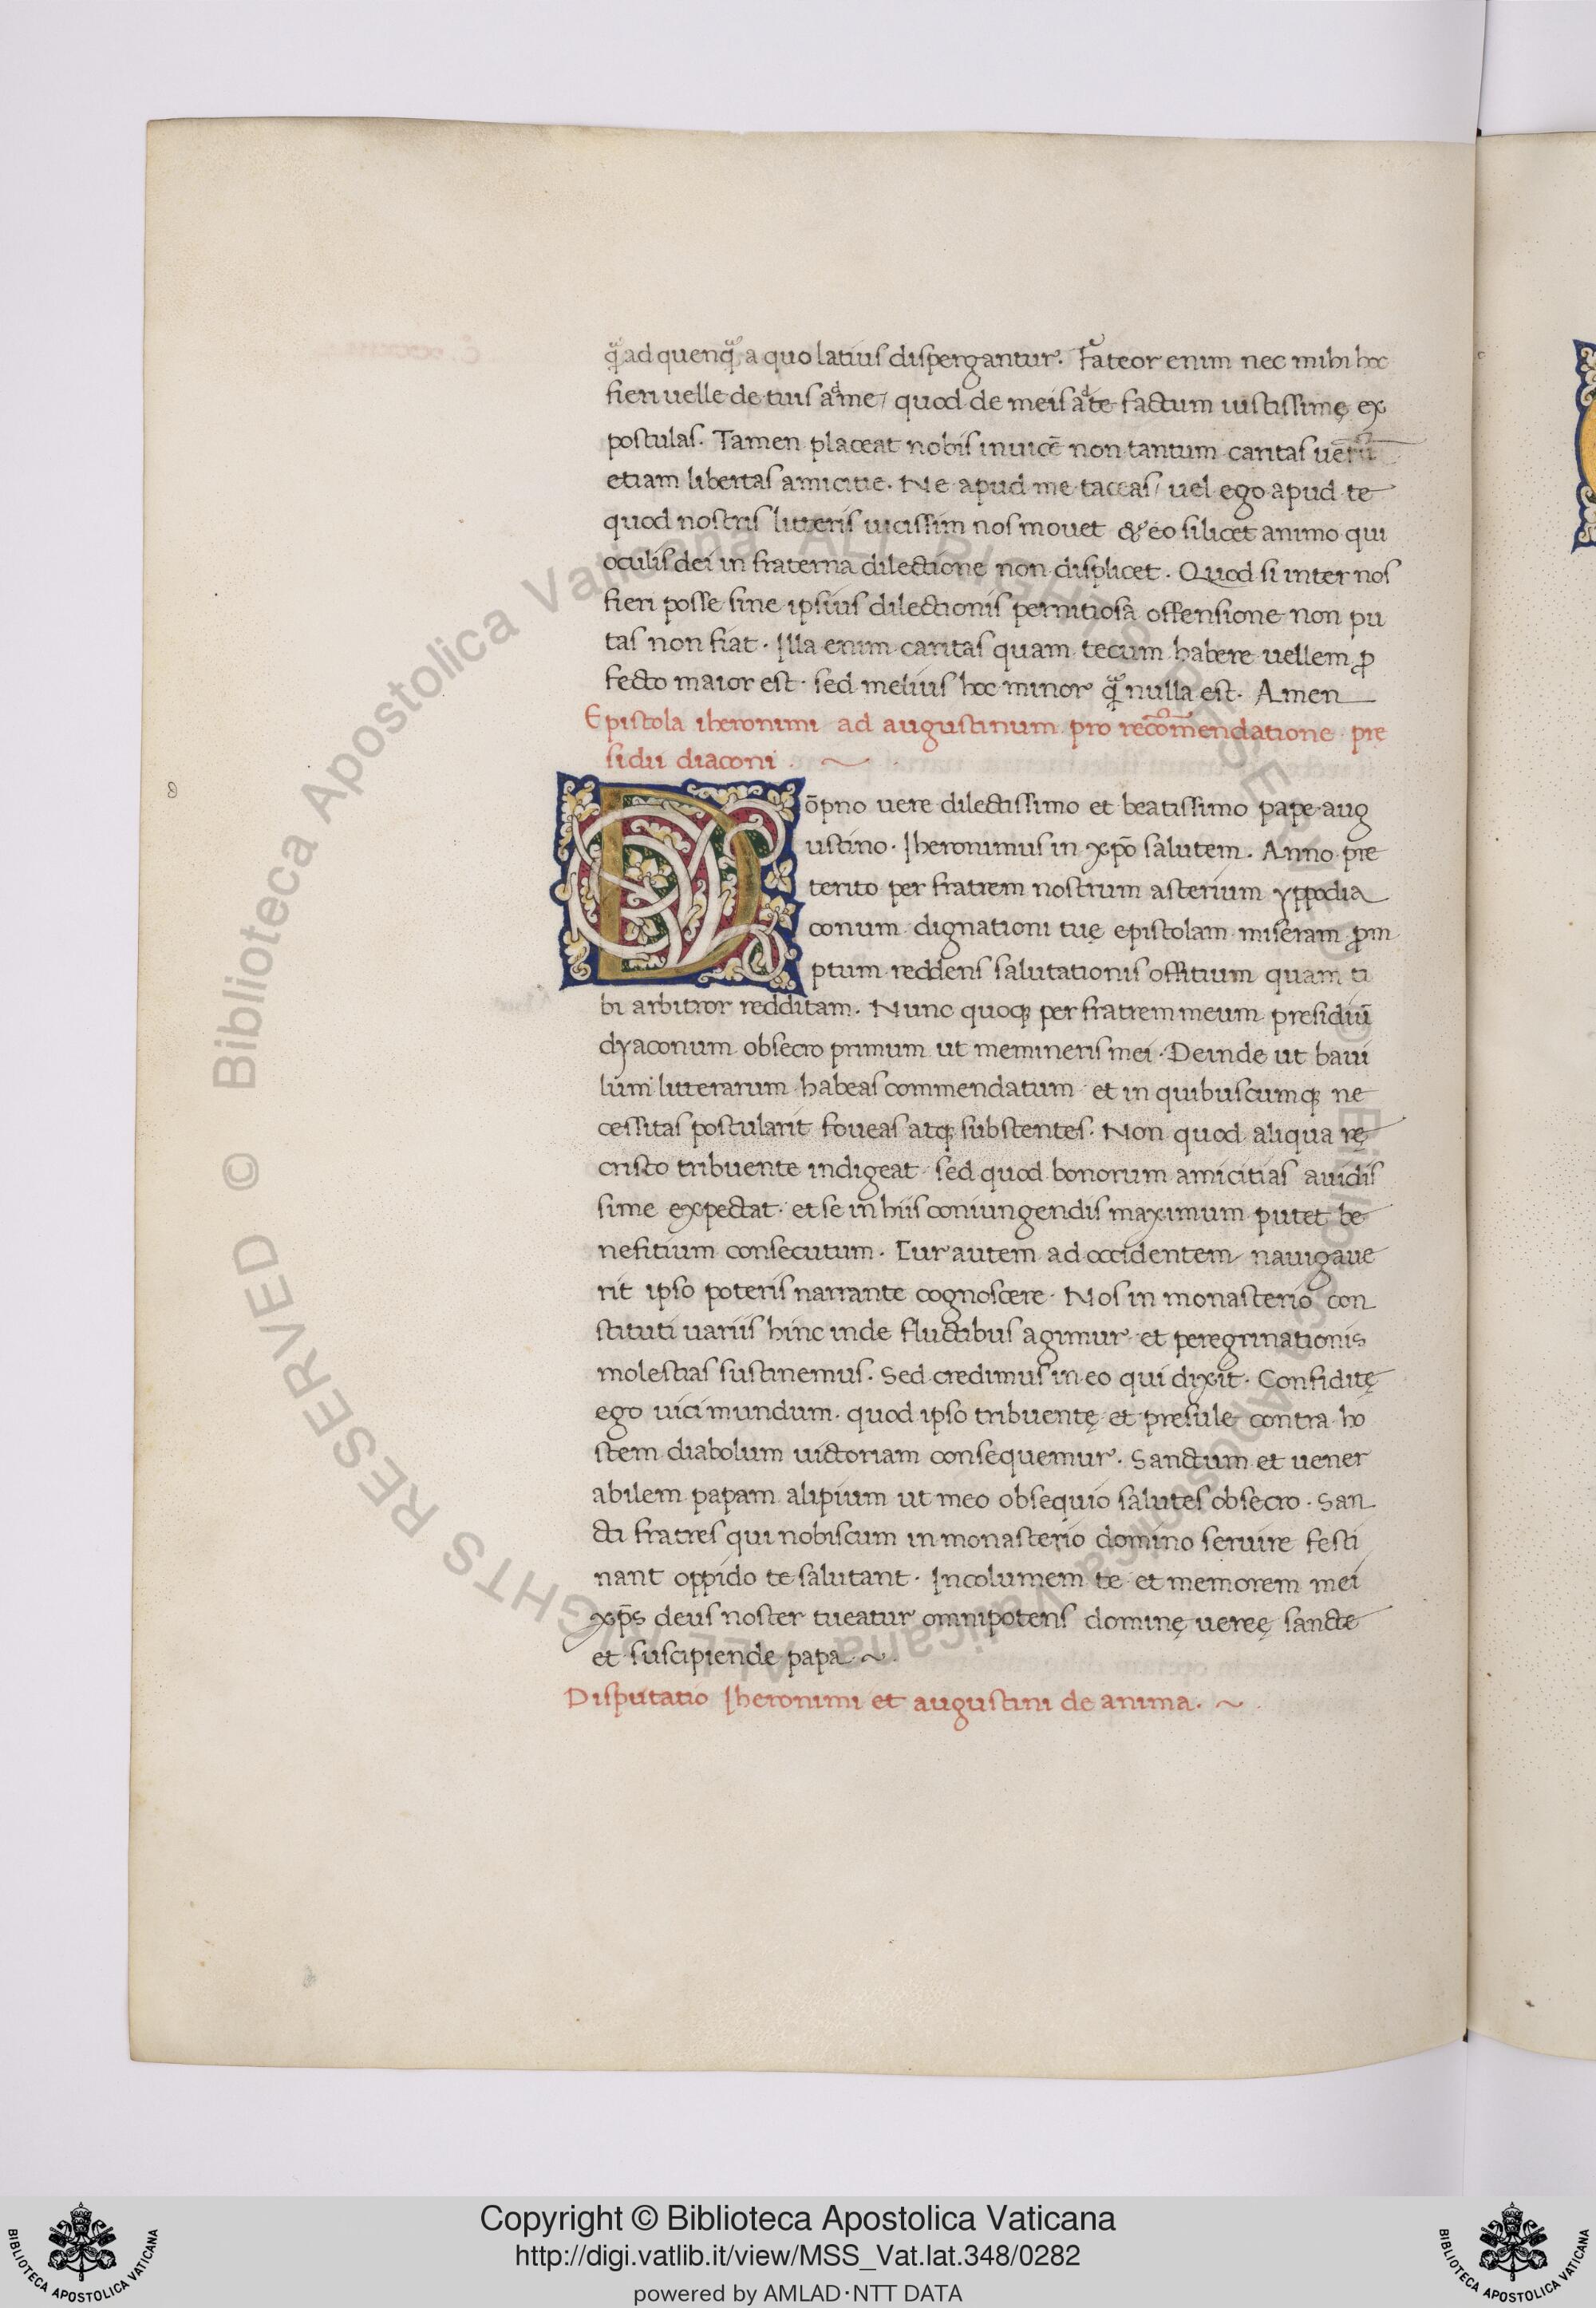 q̄ ad quenq̄ a quo latius dispergantur. Fateor enim nec mihi hoc
fieri uelle de tuis ad me/ quod de meis ad te factum iustissimę ex
postulas. Tamen placeat nobis inuicē non tantum caritas uerū
etiam libertas amicitie. Ne apud me taceas/ uel ego apud te
quod nostris litteris uicissim nos mouet & eo silicet animo qui
oculis dei in fraterna dilectione non displicet. Quod si inter nos
fieri posse sine ipsius dilectionis pernitiosa offensione non pu
tas non fiat. Illa enim caritas quam tecum habere uellem ꝓ
fecto maior est. sed melius hoc minor q̄ nulla est. Amen
Epistola iheronimi ad augustinum pro recōmendatione pre
sidii diaconi.
Dōpno uere dilectissimo et beatissimo pape aug
ustino. Iheronimus in xp̄o salutem. Anno pre
terito per fratrem nostrum asterium yppodia
conum dignationi tuę epistolam miseram ꝓm
ptum reddens salutationis offitium quam ti
bi arbitror redditam. Nunc quoqꝫ per fratrem meum presidiū
dyaconum obsecro primum ut memineris mei. Deinde ut baui
lum litterarum habeas commendatum et in quibuscumqꝫ ne
cessitas postularit foueas atqꝫ substentes. Non quod aliqua rę
cristo tribuente indigeat sed quod bonorum amicitias auidis
sime expectat. et se in hiis coniungendis maximum putet be
nefitium consecutum. Cur autem ad occidentem nauigaue
rit ipso poteris narrante cognoscere. Nos in monasterio con
stituti uariis hinc inde fluctibus agimur et peregrinationis
molestias sustinemus. Sed credimus in eo qui dixit. Confiditę
ego uici mundum. quod ipso tribuentę et presule contra ho
stem diabolum uictoriam consequemur. Sanctum et uener
abilem papam alipium ut meo obsequio salutes obsecro. San
cti fratres qui nobiscum in monasterio domino seruire festi
nant oppido te salutant. Incolumem te et memorem mei
xp̄s deus noster tueatur omnipotens dominę uereę sancte
et suscipiende papa ~.
Disputatio Iheronimi et augustini de anima. ~.
© Biblioteca Apostolica Vaticana ALL RIGHTS RESERVED
© Biblioteca Apostolica Vaticana ALL RIGHTS RESERVED
Copyright © Biblioteca Apostolica Vaticana
http://digi.vatlib.it/view/MSS_Vat.lat.348/0282
powered by AMLAD·NTT DATA
BIBLIOTECA APOSTOLICA VATICANA
BIBLIOTECA APOSTOLICA VATICANA